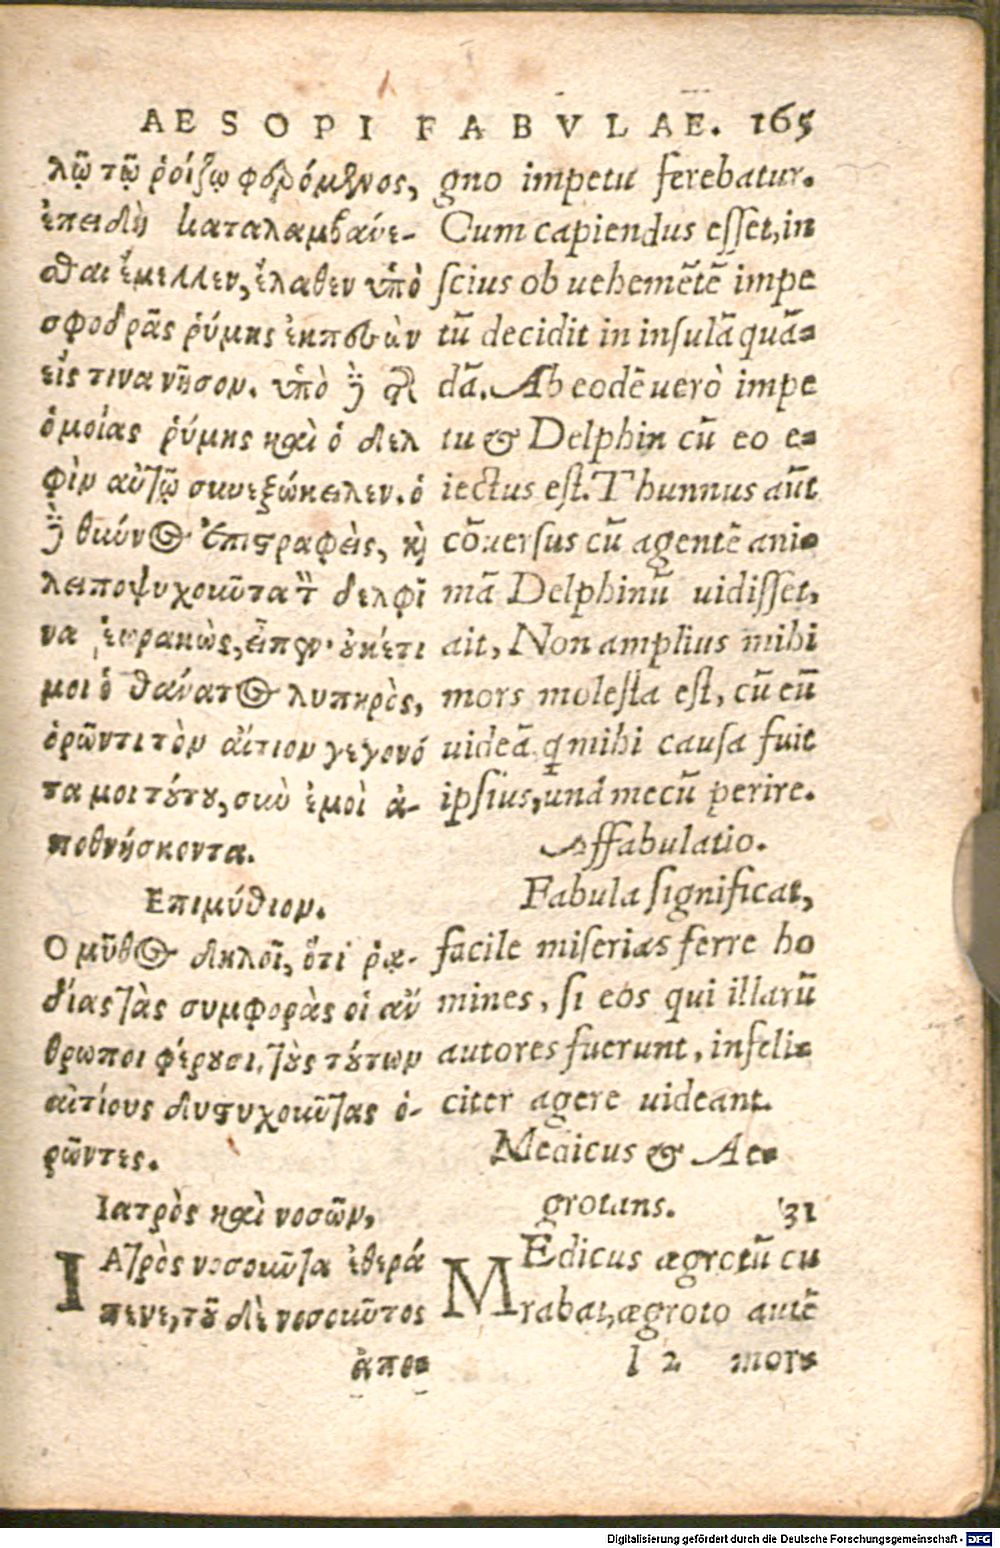 AESOPI FABVLAE. 165
λῷ τῷ ῥοίζῳ φερόμενος,
ἐπειδὴ καταλαμβάνε-
σθαι ἔμελλεν, ἔλαθεν ὑπὸ
σφοδρᾶς ῥύμης ἐκπεσὼν
εἴς τινα νῆσον. ὑπὸ δὲ τῆς
ὁμοίας ῥύμης καὶ ὁ δελ
φὶν αὐτῷ συνεξώκειλεν. ὁ
δὲ θύννος ἐπιστραφεὶς, καὶ
λειποψυχοῦντα τὸν δελφῖ
να ἑωρακὼς, εἶπεν· οὐκέτι
μοι ὁ θάνατος λυπηρὸς,
ὁρῶντι τὸν αἴτιον γεγονό
τα μοι τούτου, σὺν ἐμοὶ ἀ-
ποθνήσκοντα.
Επιμύθιον.
Ο μῦθος δηλοῖ, ὅτι ῥᾳ-
δίας τὰς συμφορὰς οἱ ἄν
θρωποι φέρουσι, τοὺς τούτων
αἰτίους δυστυχοῦντας ὁ-
ρῶντες.
Ιατρὸς καὶ νοσῶν,
ΙΑτρὸς νοσοῦντα ἐθερά
πευε, τοῦ δὲ νοσοῦντος
ἀπο-
gno impetu ferebatur.
Cum capiendus esset, in
scius ob uehemētē impe
tū decidit in insulā quā-
dā. Ab eodē uerò impe
tu & Delphin cū eo e-
iectus est. Thunnus aūt
cōuersus cū agentē ani-
mā Delphinū uidisset,
ait, Non amplius mihi
mors molesta est, cū eū
uideā, q̄ mihi causa fuit
ipsius, unà mecū perire.
Affabulatio.
Fabula significat,
facile miserias ferre ho
mines, si eos qui illarū
autores fuerunt, infeli-
citer agere uideant.
Medicus & Ae-
grotans. 31
MEdicus ægrotū cu
rabat, ægroto autē
l 2 mor-
Digitalisierung gefördert durch die Deutsche Forschungsgemeinschaft - DFG